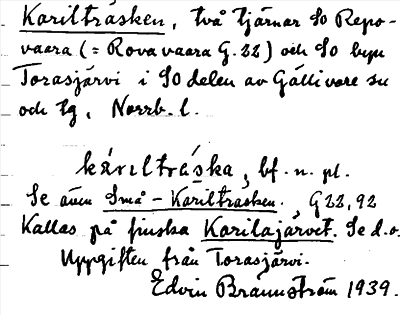 Kariltrāsken, två tjärnar SO Repo-
vaara (= Rovavaara G. 22) och SO byn
Torasjärvi i SO delen av Gällivare sn
och tg, Norrb. l.
kárıltráska, bf. n. pl.
Se även Små-Kariltrasken. G 22, 92
Kallas på finska Karilajärvet. Se d.o.
Uppgiften från Torasjärvi.
Edvin Brännström 1939.